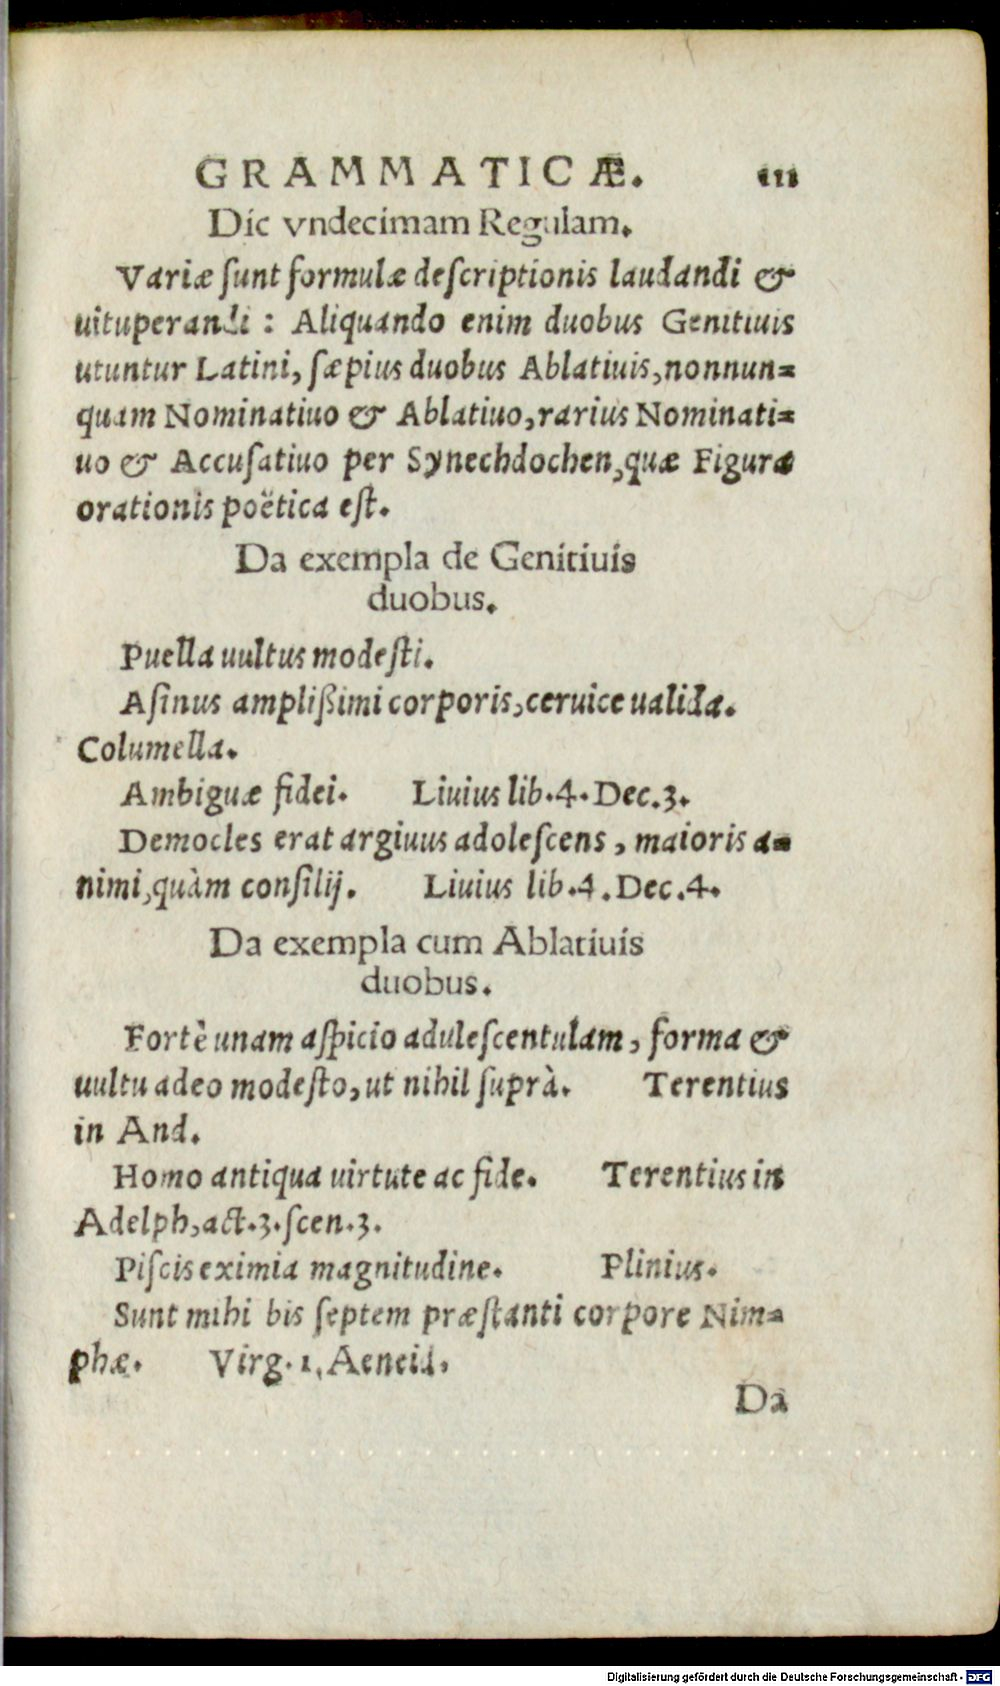 GRAMMATICÆ. 111
Dic vndecimam Regulam.
Variæ ſunt formulæ deſcriptionis laudandi &
uituperandi : Aliquando enim duobus Genitiuis
utuntur Latini, ſæpius duobus Ablatiuis, nonnun=
quam Nominatiuo & Ablatiuo, rarius Nominati=
uo & Accuſatiuo per Synechdochen, quæ Figura
orationis poëtica eſt.
Da exempla de Genitiuis
duobus.
Puella uultus modeſti.
Aſinus ampliſſimi corporis, ceruice ualida.
Columella.
Ambiguæ fidei. Liuius lib.4. Dec.3.
Democles erat argiuus adoleſcens, maioris a=
nimi, quàm conſilij. Liuius lib.4. Dec.4.
Da exempla cum Ablatiuis
duobus.
Fortè unam aſpicio aduleſcentulam, forma &
uultu adeo modeſto, ut nihil ſuprà. Terentius
in And.
Homo antiqua uirtute ac fide. Terentius in
Adelph, act.3.ſcen.3.
Piſcis eximia magnitudine. Plinius.
Sunt mihi bis ſeptem præſtanti corpore Nim=
phæ. Virg. 1. Aeneid.
Da
Digitalisierung gefördert durch die Deutsche Forschungsgemeinschaft - DFG